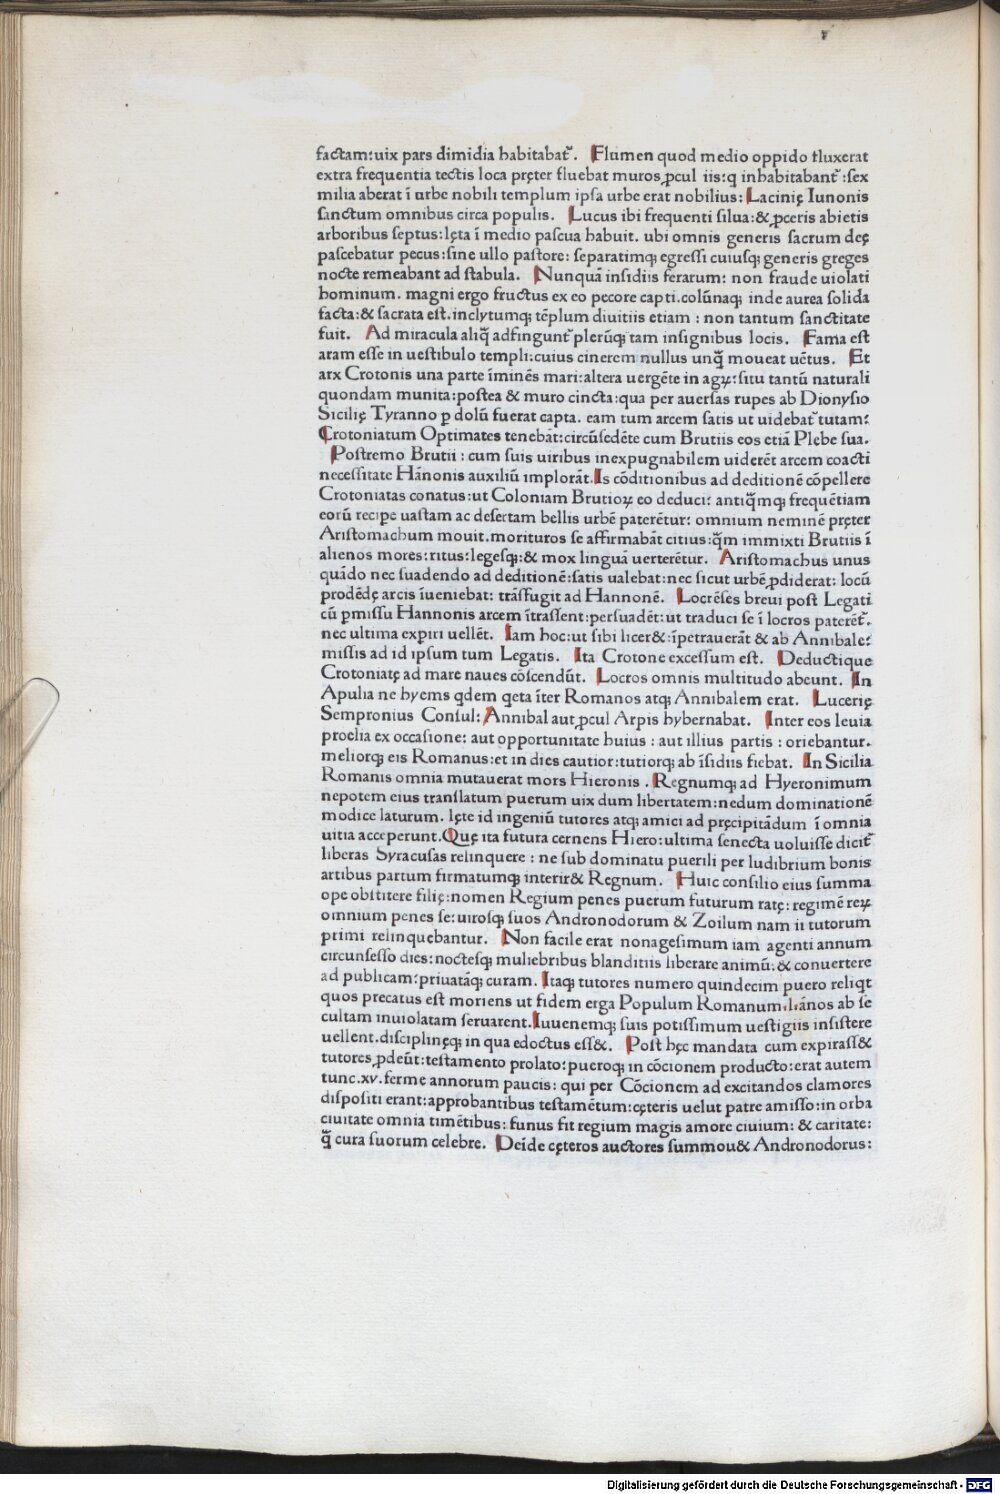 factam:uix pars dimidia habitabat᷑. Flumen quod medio oppido fluxerat
extra frequentia tectis loca pręter fluebat muros ꝓcul iis:q inhabitabant᷑:sex
milia aberat ī urbe nobili templum ipsa urbe erat nobilius: Lacinię Iunonis
sanctum omnibus circa populis. Lucus ibi frequenti silua:& ꝓceris abietis
arboribus septus:lęta ī medio pascua habuit. ubi omnis generis sacrum deę
pascebatur pecus:sine ullo pastore: separatimq; egressi cuiusq; generis greges
nocte remeabant ad stabula. Nunquā insidiis ferarum: non fraude uiolati
hominum. magni ergo fructus ex eo pecore capti.colūnaq; inde aurea solida
facta:& sacrata est.inclytumq; tēplum diuitiis etiam : non tantum sanctitate
fuit. Ad miracula aliq̄ adfingunt᷑ plerūq; tam insignibus locis. Fama est
aram esse in uestibulo templi:cuius cinerem nullus unq̄ moueat uētus. Et
arx Crotonis una parte īminēs mari:altera uergēte in agꝝ:situ tantū naturali
quondam munita:postea & muro cincta:qua per auersas rupes ab Dionysio
Sicilię Tyranno ꝑ dolū fuerat capta. eam tum arcem satis ut uidebat᷑ tutam:
Crotoniatum Optimates tenebāt:circūsedēte cum Brutiis eos etiā Plebe sua.
Postremo Brutii : cum suis uiribus inexpugnabilem uiderēt arcem coacti
necessitate Hānonis auxiliū implorāt. Is cōditionibus ad deditionē cōpellere
Crotoniatas conatus:ut Coloniam Brutioꝝ eo deduci: antiq̄mq; frequētiam
eorū recipe uastam ac desertam bellis urbē paterētur: omnium neminē pręter
Aristomachum mouit.morituros se affirmabāt citius:q̄m immixti Brutiis ī
alienos mores:ritus:legesq;:& mox linguā uerterētur. Aristomachus unus
quādo nec suadendo ad deditionē:satis ualebat:nec sicut urbē ꝓdiderat: locū
prodēdę arcis iueniebat: trāsfugit ad Hannonē. Locrēses breui post Legati
cū pmissu Hannonis arcem ītrassent:persuadēt:ut traduci se ī locros paterēt᷑.
nec ultima expiri uellēt. Iam hoc:ut sibi licer&:īpetrauerāt & ab Annibale:
missis ad id ipsum tum Legatis. Ita Crotone excessum est. Deductique
Crotoniatę ad mare naues cōscendūt. Locros omnis multitudo abeunt. In
Apulia ne hyems qdem qeta īter Romanos atq; Annibalem erat. Lucerię
Sempronius Consul: Annibal aut ꝓcul Arpis hybernabat. Inter eos leuia
proelia ex occasione: aut opportunitate huius : aut illius partis : oriebantur.
meliorq; eis Romanus:et in dies cautior:tutiorq; ab īsidiis fiebat. In Sicilia
Romanis omnia mutauerat mors Hieronis . Regnumq; ad Hyeronimum
nepotem eius translatum puerum uix dum libertatem:nedum dominationē
modice laturum. lęte id ingeniū tutores atq; amici ad pręcipitādum ī omnia
uitia acceperunt. Quę ita futura cernens Hiero:ultima senecta uoluisse dicit᷑
liberas Syracusas relinquere : ne sub dominatu puerili per ludibrium bonis
artibus partum firmatumq; interir& Regnum. Huic consilio eius summa
ope obstitere filię:nomen Regium penes puerum futurum ratę: regimē reꝝ
omnium penes se:uirosq; suos Andronodorum & Zoilum nam ii tutorum
primi relinquebantur. Non facile erat nonagesimum iam agenti annum
circunsesso dies:noctesq; muliebribus blanditiis liberare animū:& conuertere
ad publicam:priuatāq; curam. Itaq; tutores numero quindecim puero reliqt
quos precatus est moriens ut fidem erga Populum Romanum.l.ānos ab se
cultam inuiolatam seruarent. Iuuenemq; suis potissimum uestigiis insistere
uellent.disciplinęq; in qua edoctus ess&. Post hęc mandata cum expirass&
tutores ꝓdeūt:testamento prolato:pueroq; in cōcionem producto:erat autem
tunc.xv.ferme annorum paucis: qui per Cōcionem ad excitandos clamores
dispositi erant:approbantibus testamētum:cęteris uelut patre amisso:in orba
ciuitate omnia timētibus: funus fit regium magis amore ciuium: & caritate:
q̄ cura suorum celebre. Deīde cęteros auctores summou& Andronodorus:
Digitalisierung gefördert durch die Deutsche Forschungsgemeinschaft - DFG